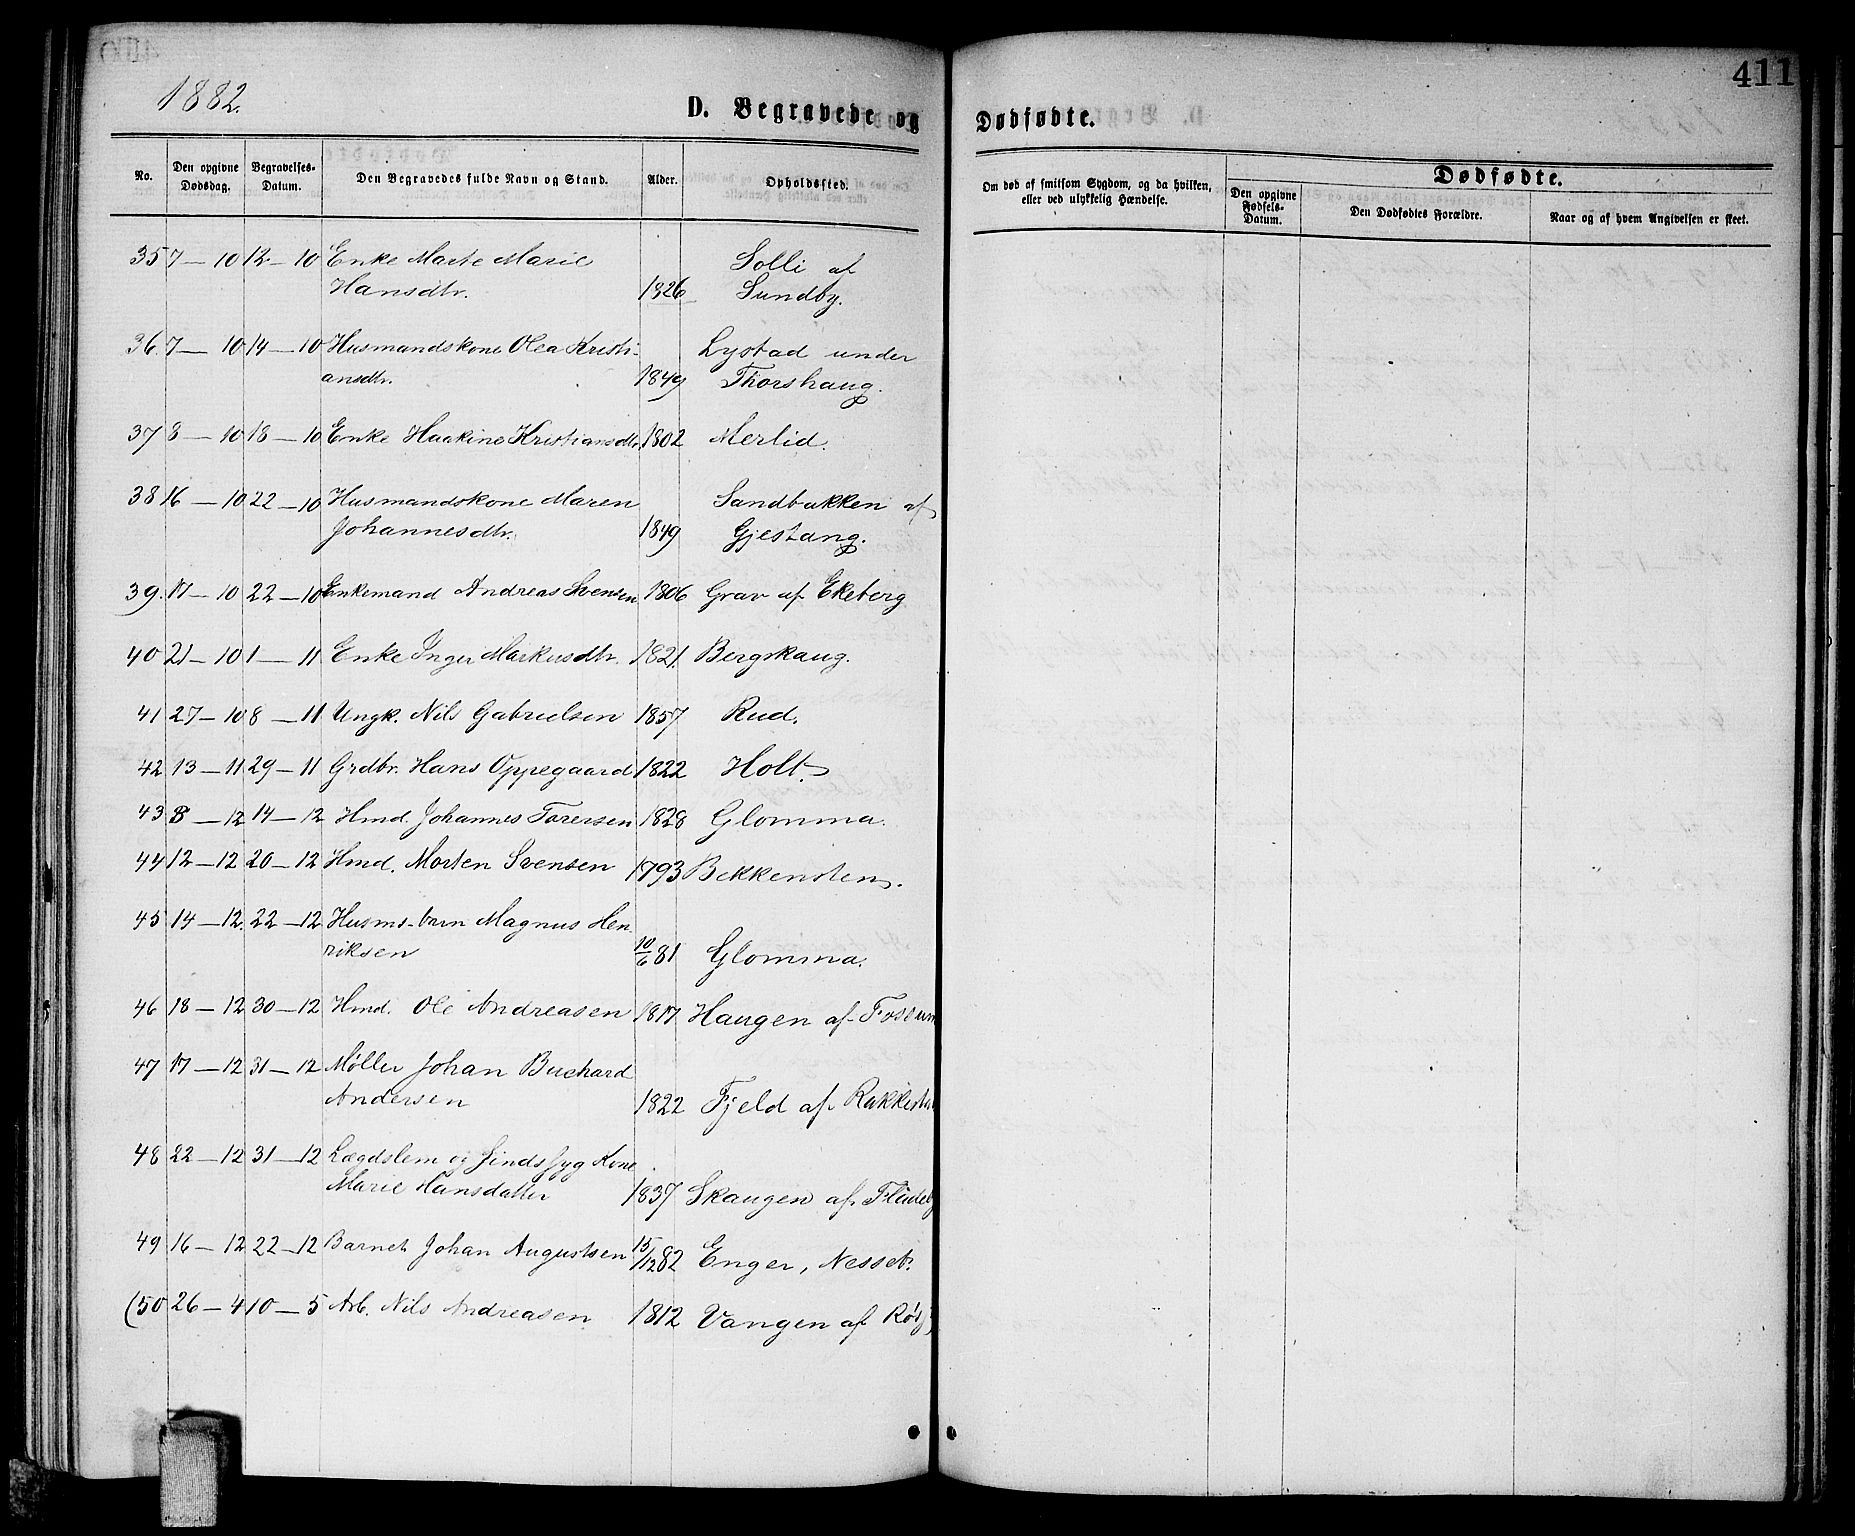 411
1882.
D. Begravede og Dødfødte.
No. Den opgivne Dødsdag. Begravelses-Datum. Den Begravedes fulde Navn og Stand. Alder. Opholdssted. Om død af smitsom Sygdom, og da hvilken, eller ved ulykkelig Hændelse. Dødfødte. Den opgivne Fødsels-Datum. Den Dødfødtes Forældre. Naar og af hvem Angivelsen er skeet.
35 7 — 10 12 — 10 Enke Marte Marie Solli af
Hansdtr. 1826 Sundby.
36. 7 — 10 14 — 10 Husmandskone Olea Kristi- Lystad under
ansdtr. 1849 Thorshaug.
37 8 — 10 18 — 10 Enke Haakine Kristiansdtr. 1802 Merlid.
38 16 — 10 22 — 10 Husmandskone Maren Sandbakken af
Johannesdtr. 1849 Gjestang.
39. 17 — 10 22 — 10 Enkemand Andreas Svensen 1806 Grav af Ekeberg
40 21 — 10 1 — 11 Enke Inger Markusdtr. 1821. Bergskaug.
41 27 — 10 8 — 11 Ungk. Nils Gabrielsen 1857 Rud.
42 13 — 11 29 — 11 Grdbr. Hans Oppegaard 1822 Holt.
43 8 — 12 14 — 12 Hmd. Johannes Torersen 1828 Glomma.
44 12 — 12 20 — 12 Hmd. Morten Svensen 1793 Bekkensten.
45 14 — 12. 22 — 12 Husms. barn Magnus Hen-
riksen 10/6 81 Glomma.
46 18 — 12 30 — 12 Hmd. Ole Andreasen 1817 Haugen af Fossum
47 17 — 12 31 — 12 Møller Johan Buchard
Andersen 1822 Fjeld af Rakkesta
48 22 — 12 31 — 12 Lægdslem og sindssyg Kone
Marie Hansdatter 1837 Skaugen af
49 16 — 12 22 — 12 Barnet Johan Augustsen 15/12 82 Enger, Nesset.
(50 26 — 4 10 — 5 Arb. Nils Andreasen 1812 Vangen af